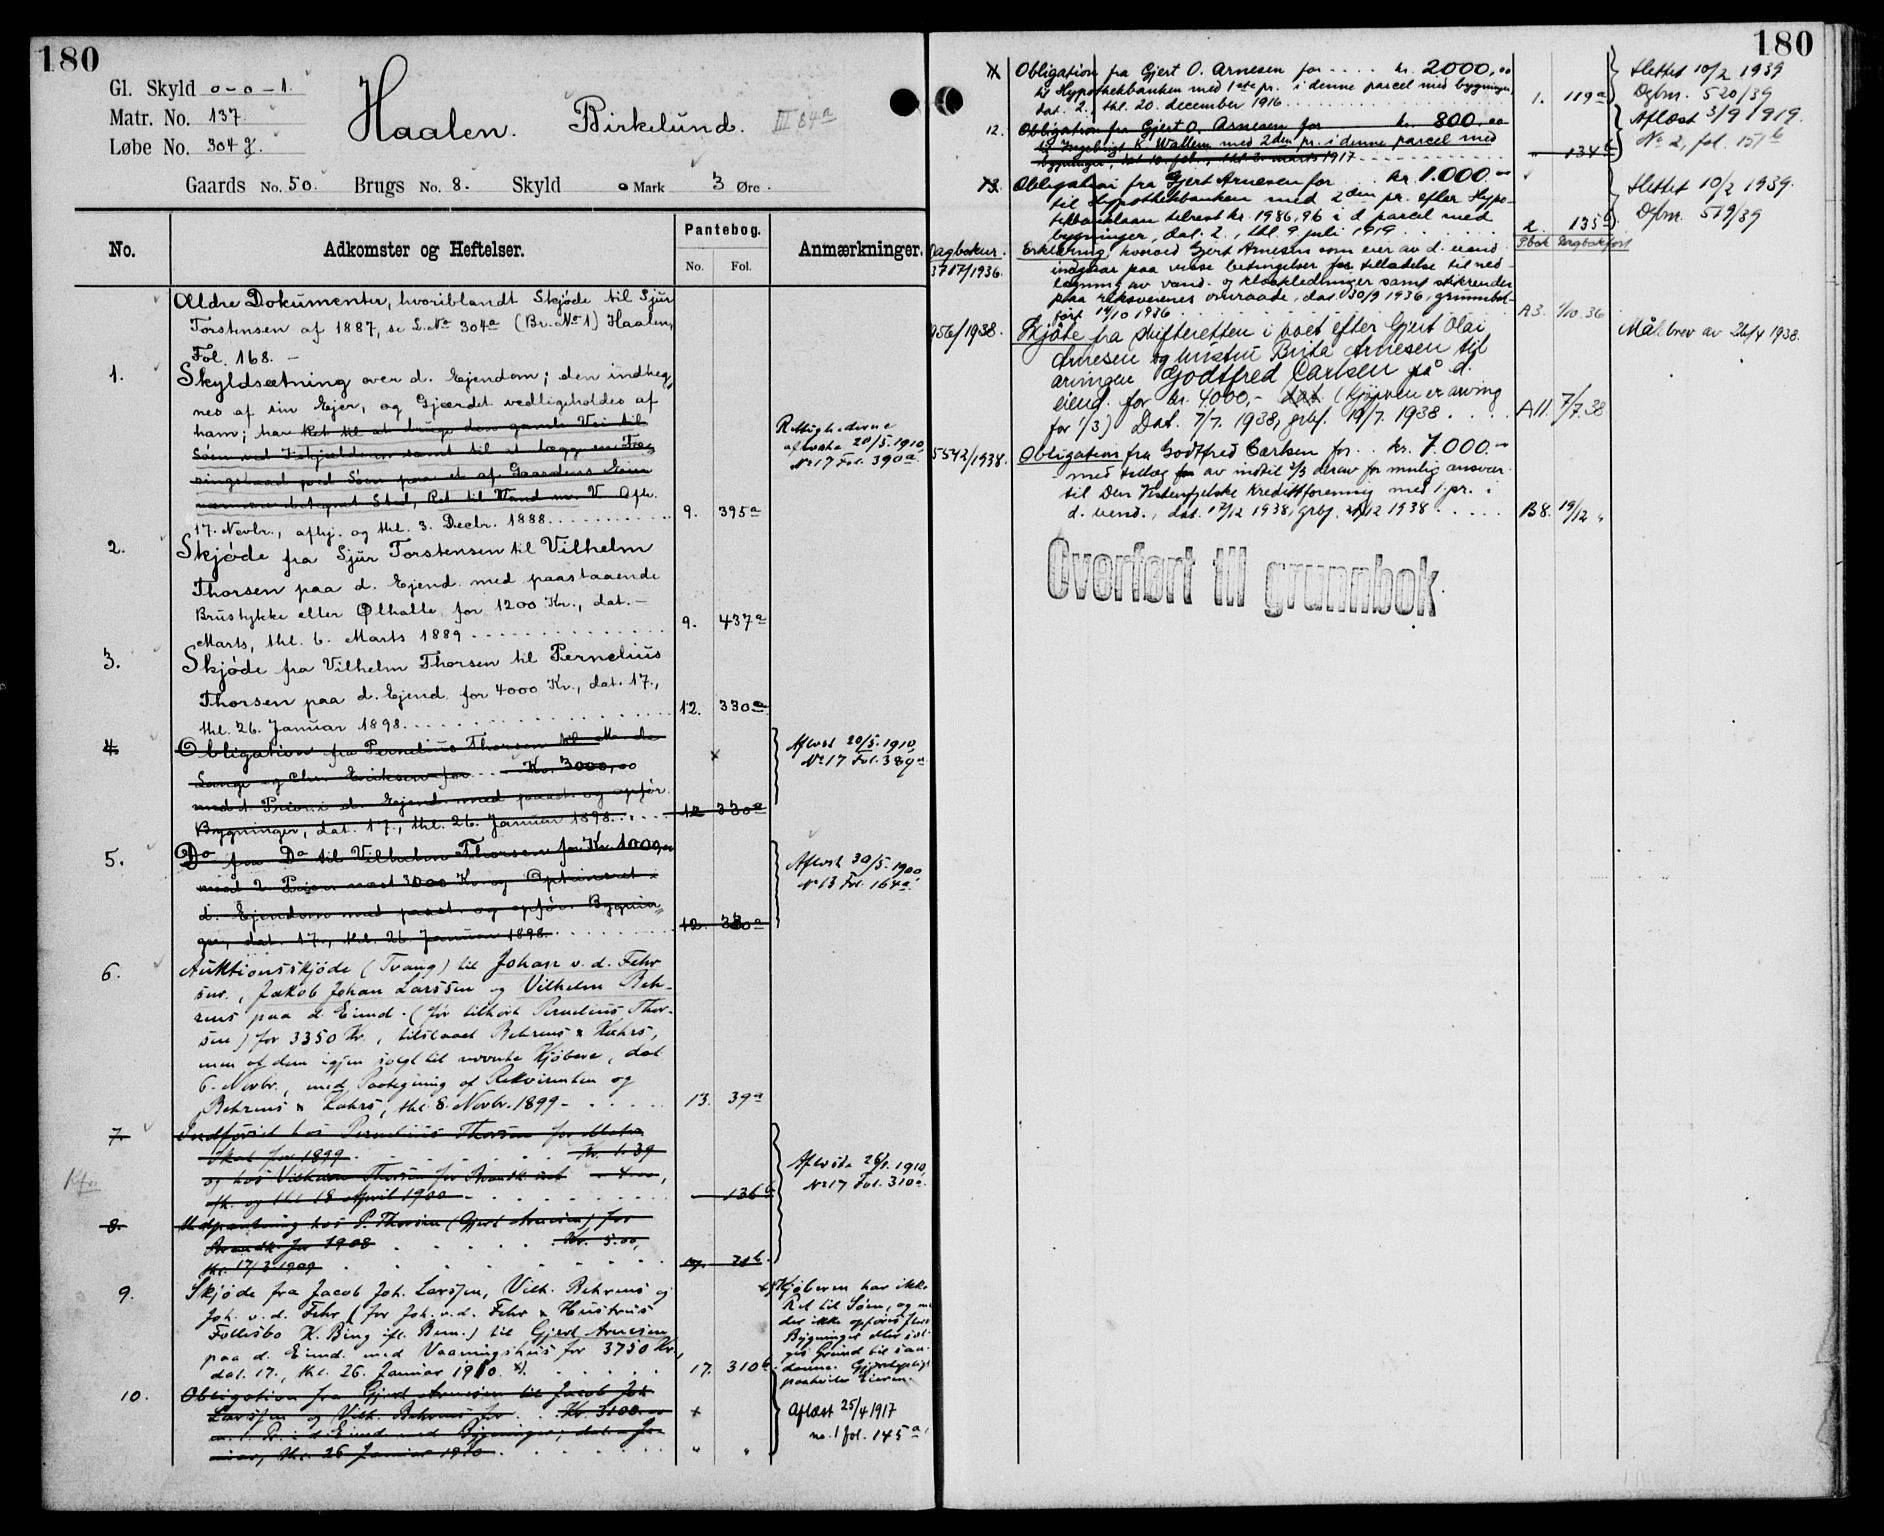 180
Gl. Skyld 0-0-1.
Matr. No. 137.
Løbe No. 304 g.
Haalen. Birkelund. III 84a
Gaards No. 50. Brugs No. 8. Skyld 0 Mark 3 Øre.
No.
Adkomster og Heftelser.
Pantebog.
No. Fol.
Anmærkninger.
Ældre Dokumenter, hvoriblandt Skjøde til Sjur
Torstensen af 1887, se L.No 304a (Br. No 1) Haalen,
Fol. 168. –
1. Skyldsætning over d. Ejendom; den indheg„
nes af sin Ejer, og Gjærdet vedligeholdes af
ham; har Ret til at bruge den gamle Vei til
Søen samt til at lægge en
Søen paa et af Gaardens
Sted, Ret til Vand m. V. Afh.
17. Novbr., afhj. og thl. 3. Decbr. 1888.
9. 395a
Rettighederne
aflyste 20/5. 1910,
No 17 Fol. 390a.
2. Skjøde fra Sjur Torstensen til Vilhelm
Thorsen paa d. Ejend. med paastaaende
Brustykke eller Ølhalle for 1200 Kr., dat. –
Marts, thl. 6. Marts 1889
9. 437a
3. Skjøde fra Vilhelm Thorsen til Pernelius
Thorsen paa d. Ejend. for 4000 Kr., dat. 17.,
thl. 26. Januar 1898.
12. 330a
4. Obligation fra Pernelius Thorsen til
Lange og Chr. Eriksen for Kr. 3000,00
med 1. Prior. i d. Ejend. med paast. og opfør.
Bygninger, dat. 17., thl. 26. Januar 1898.
12 330a
Aflæst 20/5. 1910,
No 17 Fol. 389a
5. Do fra Do til Vilhelm Thorsen for Kr. 1000,00
med 2. Prior. næst 3000 Kr. og Optrinsret i
d. Ejendom med paast. og opfør. Bygnin„
ger, dat. 17., thl. 26. Januar 1898.
12. 330a
Aflæst 30/5. 1900,
No 13 Fol. 164a.
6. Auktionsskjøde (Tvang) til Johan v. d. Fehr
snr., Jakob Johan Larssen og Vilhelm Beh-
rens paa d. Eiend. (før tilhørt Pernelius Thor-
sen) for 3350 Kr., tilslaaet Behrens & Kahrs,
men af dem igjen solgt til nævnte Kjøbere, dat
6. Novbr., med Paategning af Rekvirenten og
Behrens & Kahrs, thl. 8. Novbr. 1899 –
13. 39a
7. Indførsel hos Pernelius Thorsen for
Skat for 1899 Kr. 1.39
og hos Vilhelm Thorsen for 4.00,
afh. og thl. 18 April 1900 –
136
Aflyste 1910,
No 17 Fol. 310a.
8. Udpantning hos P. Thorsen (Gjert Arnesen) for
for 1908 Kr. 5.00,
thl. 17/3 1909
9. Skjøde fra Jacob Joh. Larssen, Vilh. Behrens og
Joh. v. d. Fehr (for Joh. v. d. Fehr & Hustrus
Fællesbo K. Bing ifl. Bem.) til Gjert Arnesen
paa d. Eiend. med Vaaningshus for 3750 Kr.,
dat. 17., thl. 26. Januar 1910. x).
17. 310
x) Kjøberen har ikke
Ret til Søen, og
der ikke opføres flere
Bygninger eller
Grund til
Gjerdepligt
paahviler Eieren.
10. Obligation fra Gjert Arnesen til Jacob Joh.
Larssen og Vilh. Behrens for Kr. 3100.00
m. 1. Pr. i d. Eiend. med Bygninger, dat. Ja-
nuar, thl. 26 Januar 1910
Aflæst 25/4 1917
no. 1 fol. 145a.
180
11 Obligation fra Gjert O. Arnesen for kr. 2000,00
til Hypothekbanken med 1ste pr. i denne parcel med bygninger,
dat. 2., thl. 20. december 1916
1. 119a
Slettet 10/2 1939
Dgbnr. 520/39
12. Obligation fra Gjert O. Arnesen for kr. 800,00
til Ingebrigt K. Wallem med 2den pr. i denne parcel med
bygninger, dat 10. febr., thl. 3. marts 1917
134
Aflæst 3/9 1919.
No 2, fol. 151b
13. Obligation fra Gjert Arnesen for kr. 1.000.00
til Hypothekbanken med 2den pr. efter Hypo-
tekbanklaan tilrest kr. 1986,96 i d parcel med
bygninger, dat. 2., thl. 9 juli 1919
2. 135b
Slettet 10/2 1939.
Dgbnr. 519/39
Dagboknr.
Pbok Dagbokført
3717/1936. Erklæring hvorved Gjert Arnesen som eier av d. eiend
indgaar paa visse betingelser for tilladelse til ned-
lægning av vand- og kloakledninger samt stikrender
paa veivæsenets omraade, dat. 30/9 1936, grunnbok-
ført 14/10 1936
A3. 1/10. 36
956/1938. Skjøte fra skifteretten i boet efter Gjert Olai
Arnesen og hustru Brita Arnesen til
arvingen Godtfred Carlsen på d.
eiend. for kr. 4000,- (Kjøperen er arving
for 1/3) Dat. 7/7. 1938, grbf. 19/7. 1938.
A11. 7/7. 38
Målebrev av 26/4 1938.
5542/1938. Obligation fra Godtfred Carlsen for kr. 7.000.00
med tillæg av indtil 1/3 derav for mulig ansvar
til Den Vestenfjelske Kredittforening med 1. pr. i
d. eiend., dat. 17/12 1938, grbf. 1938
B8. 19/12 "
Overført til grunnbok.